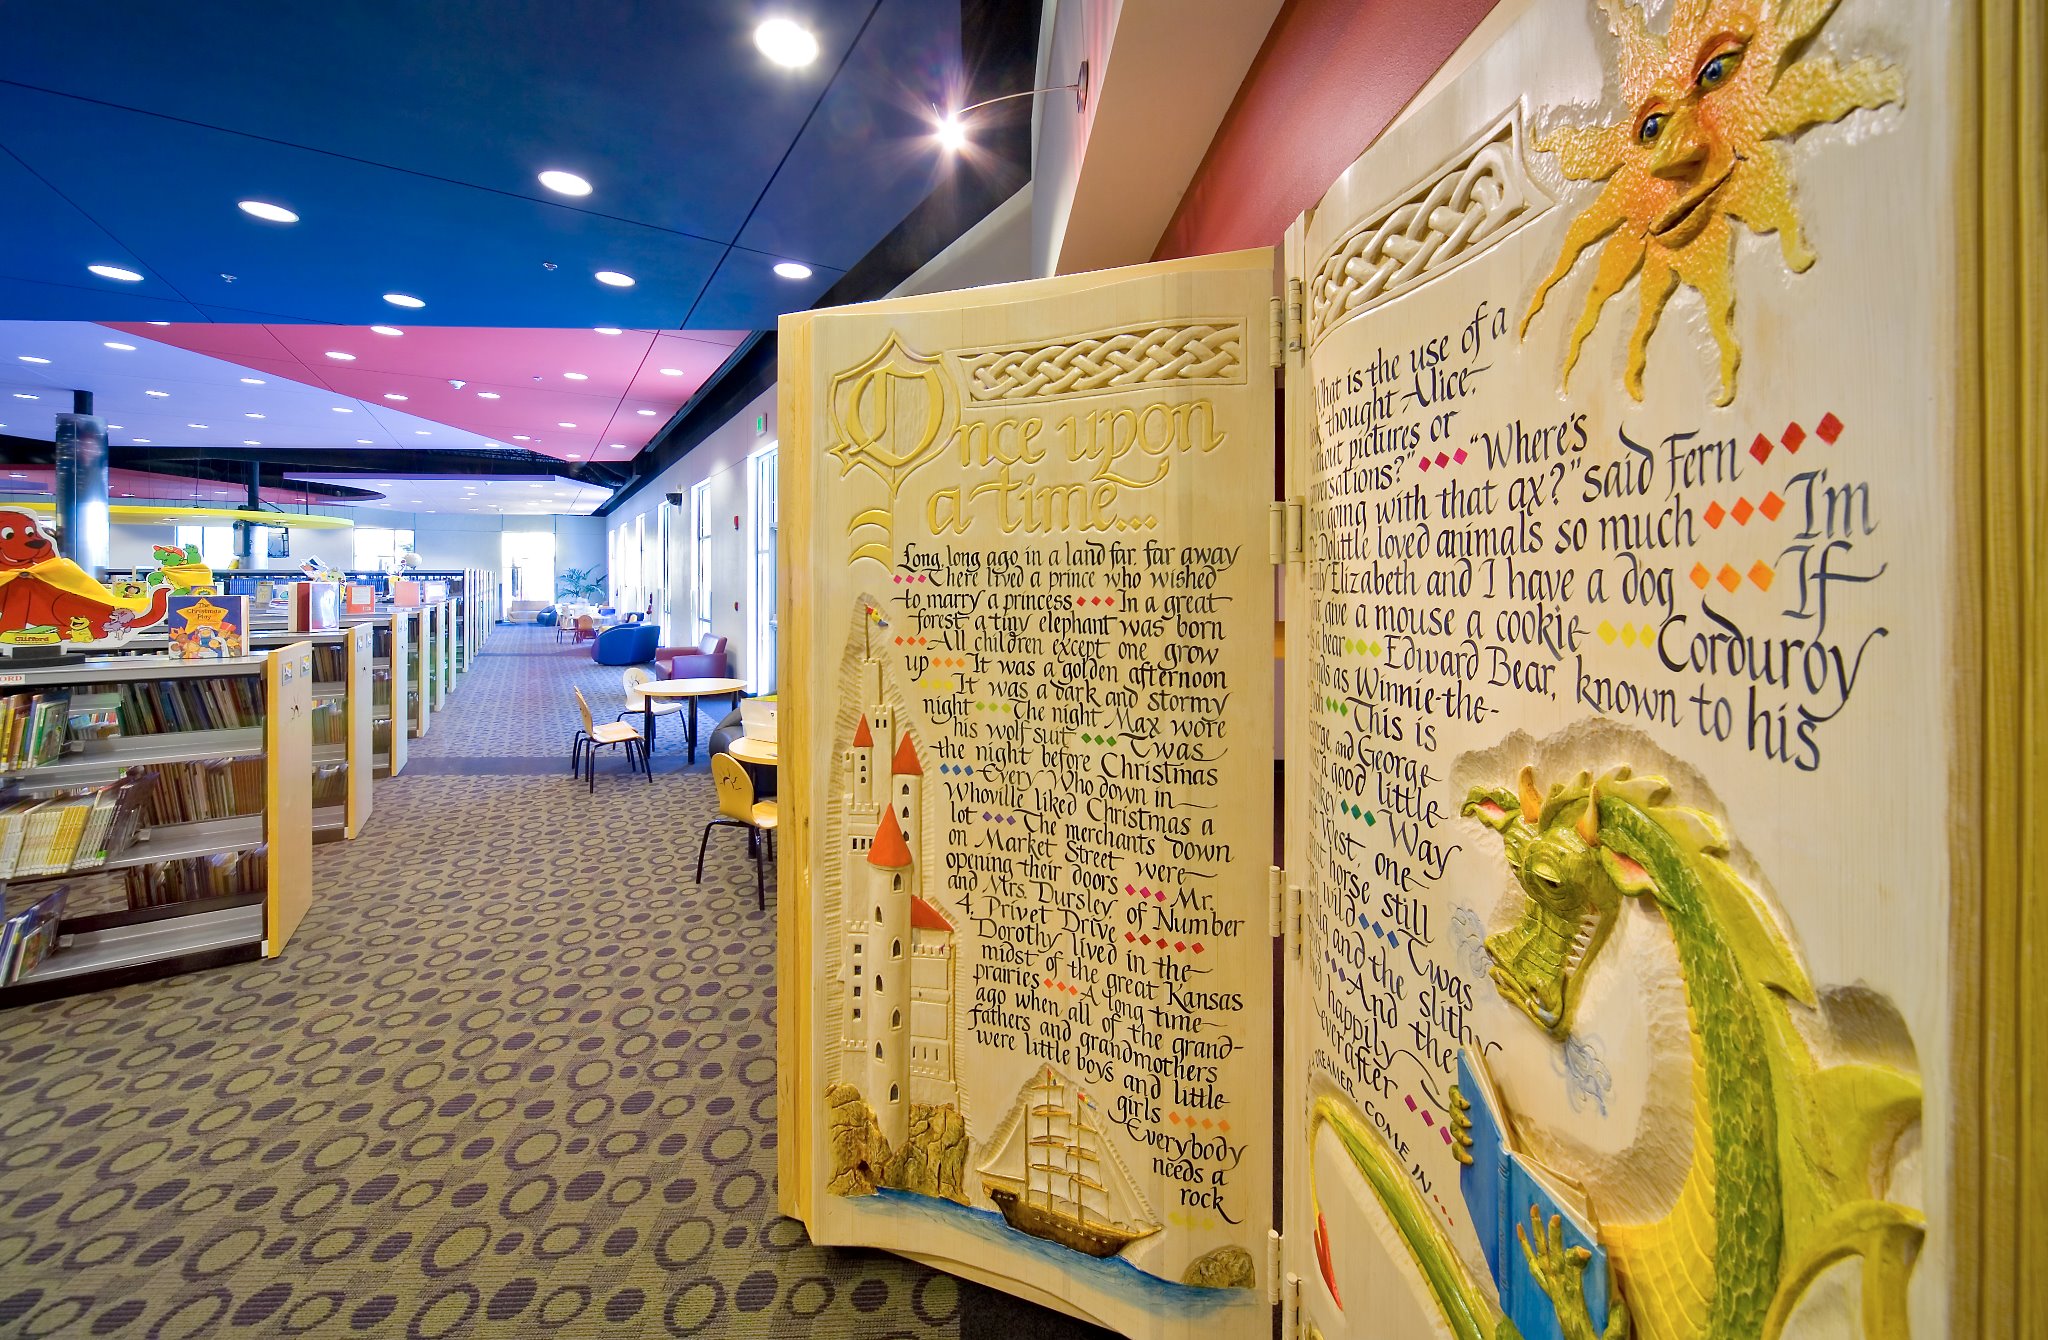 Once upon
a time...
Long, long ago in a land far, far away
There lived a prince who wished
to marry a princess In a great
forest a tiny elephant was born
All children except one grow
up It was a golden afternoon
It was a dark and stormy
night The night Max wore
his wolf suit Twas
the night before Christmas
Every Who down in
Whoville liked Christmas a
lot The merchants down
on Market Street were
opening their doors Mr.
and Mrs. Dursley, of Number
4, Privet Drive
Dorothy lived in the
midst of the great Kansas
prairies A long time
ago when all of the grand-
fathers and grandmothers
were little boys and little
girls
Everybody
needs a
rock
"What is the use of a
thought Alice,
pictures or
"Where's
going with that ax?" said Fern
Dolittle loved animals so much I'm
Elizabeth and I have a dog If
give a mouse a cookie Corduroy
bear Edward Bear, known to his
as Winnie-the-
This is
and George
a good little
Way
West, one
horse still
wild Twas
and the slithy
And the
happily
everafter
DREAMER, COME IN
Clifford
The Christmas
Play